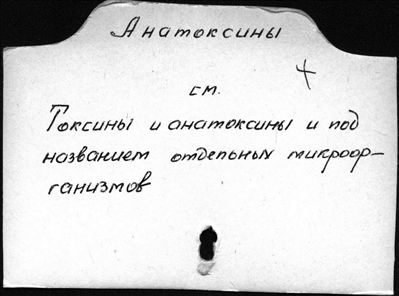 Анатоксины
4
см.
Токсины и анатоксины и под
названием отдельных микроор-
ганизмов